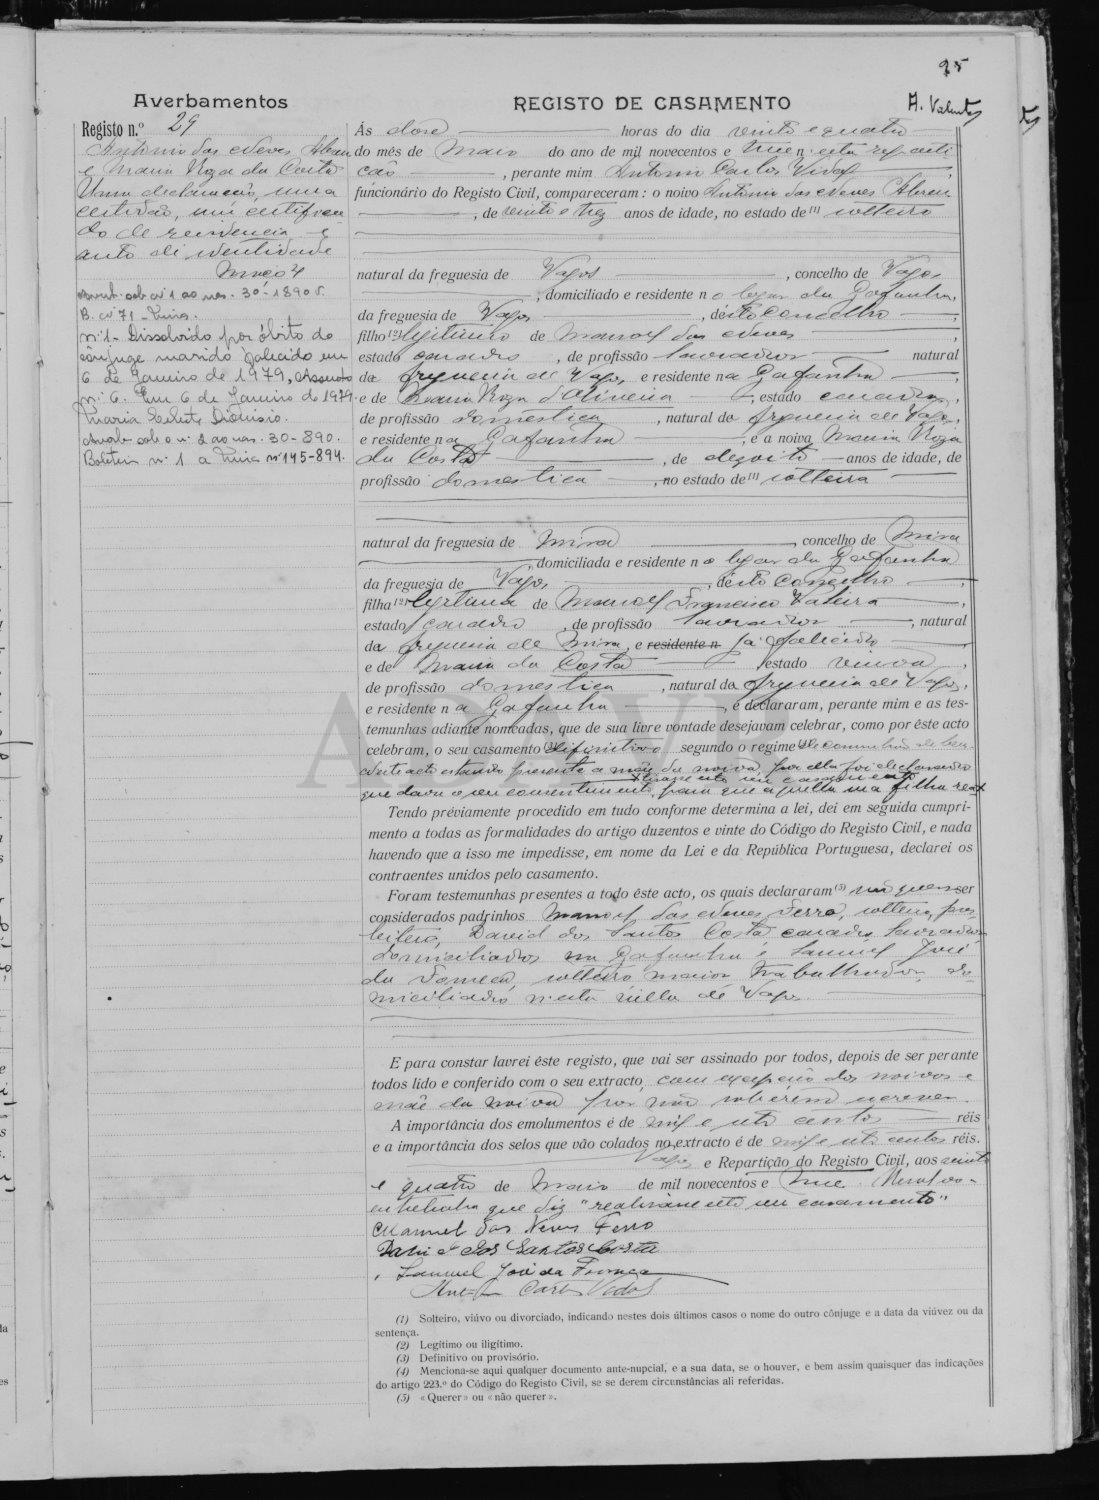 95
Averbamentos
REGISTO DE CASAMENTO
Registo n.º 29
Antonio das Neves Abreu
e Maria Roza da Costa
Uma declaração, uma
certidão, um certifica
do de residencia e
auto de identidade
Maço 4
nº 1 - Dissolvido por óbito do
cônjuge marido falecido em
6 de Janeiro de 1979, Assento
nº 6. Em 6 de Janeiro de 1979.
Maria Celeste Dionisio.
Boletim nº 1 a Mira nº 145-894.
Ás doze horas do dia vinte e quatro
do mês de Maio do ano de mil novecentos e treze n'esta reparti
ção, perante mim Antonio Carlos Vidal
funcionário do Registo Civil, compareceram: o noivo Antonio das Neves Abreu
, de vinte e trez anos de idade, no estado de (1) solteiro
natural da freguesia de Vagos, concelho de Vagos
, domiciliado e residente no logar da Gafanha,
da freguesia de Vagos, dêste concelho,
filho (2) legitimo de Manoel das Neves,
estado casado, de profissão lavrador natural
da freguesia de Vagos, e residente na Gafanha,
e de Maria Roza d'Oliveira, estado casada,
de profissão domestica, natural da freguesia de Vagos,
e residente na Gafanha, e a noiva Maria Roza
da Costa, de dezoito anos de idade, de
profissão domestica, no estado de (1) solteira
natural da freguesia de Mira, concelho de Mira
domiciliada e residente no logar da Gafanha
da freguesia de Vagos, dêste concelho,
filha (2) legitima de Manoel Francisco Pateira,
estado casado, de profissão lavrador, natural
da freguesia de Mira, e residente n já falecido
e de Maria da Costa, estado viuva,
de profissão domestica, natural da freguesia de Vagos,
e residente na Gafanha, e declararam, perante mim e as tes-
temunhas adiante nomeadas, que de sua livre vontade desejavam celebrar, como por êste acto
celebram, o seu casamento (3) difinitivo segundo o regime (4) de comunhão de bens.
N'este acto estando presente a mãe da noiva, por ella foi declarado
x lisasse este seu casamento
que dava o seu consentimento para que aquella sua filha rea x
Tendo préviamente procedido em tudo conforme determina a lei, dei em seguida cumpri-
mento a todas as formalidades do artigo duzentos e vinte do Código do Registo Civil, e nada
havendo que a isso me impedisse, em nome da Lei e da República Portuguesa, declarei os
contraentes unidos pelo casamento.
Foram testemunhas presentes a todo êste acto, os quais declararam (5) não querer ser
considerados padrinhos Manoel das Neves Ferro, solteiro,
David dos Santos Costa, casado, lavrador
domiciliados na Gafanha e Samuel José
da Fonseca, solteiro maior, trabalhador, do
miciliado n'esta villa de Vagos.
E para constar lavrei êste registo, que vai ser assinado por todos, depois de ser perante
todos lido e conferido com o seu extracto, com excepção dos noivos e
mãe da noiva por não saberem escrever.
A importância dos emolumentos é de mil e oito centos réis
e a importância dos selos que vão colados no extracto é de mil e oito centos réis.
Vagos e Repartição do Registo Civil, aos vinte
e quatro de Maio de mil novecentos e treze. Resalvo a
entrelinha que diz "realisasse este seu casamento"
Manuel das Neves Ferro
David dos Santos Costa
Samuel José da Fonseca
Antonio Carlos Vidal
(1) Solteiro, viúvo ou divorciado, indicando nestes dois últimos casos o nome do outro cônjuge e a data da viúvez ou da
sentença.
(2) Legítimo ou iligítimo.
(3) Definitivo ou provisório.
(4) Menciona-se aqui qualquer documento ante-nupcial, e a sua data, se o houver, e bem assim quaisquer das indicações
do artigo 223.º do Código do Registo Civil, se se derem circunstâncias ali referidas.
(5) «Querer» ou «não querer».